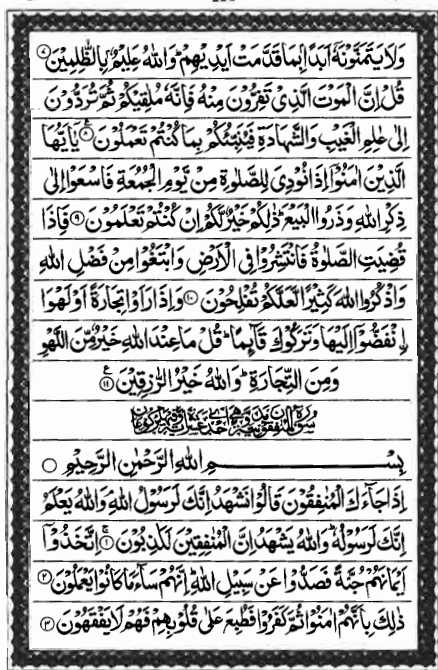 وَلَا يَتَمَنَّوْنَهٗۤ اَبَدًۢا بِمَا قَدَّمَتْ اَیْدِیْهِمْ ؕ وَاللّٰهُ عَلِیْمٌۢ بِالظّٰلِمِیْنَ ۷
قُلْ اِنَّ الْمَوْتَ الَّذِیْ تَفِرُّوْنَ مِنْهُ فَاِنَّهٗ مُلٰقِیْكُمْ ثُمَّ تُرَدُّوْنَ
اِلٰی عٰلِمِ الْغَیْبِ وَالشَّهَادَةِ فَیُنَبِّئُكُمْ بِمَا كُنْتُمْ تَعْمَلُوْنَ ۸ یٰۤاَیُّهَا
الَّذِیْنَ اٰمَنُوْۤا اِذَا نُوْدِیَ لِلصَّلٰوةِ مِنْ یَّوْمِ الْجُمُعَةِ فَاسْعَوْا اِلٰی
ذِكْرِ اللّٰهِ وَذَرُوا الْبَیْعَ ؕ ذٰلِكُمْ خَیْرٌ لَّكُمْ اِنْ كُنْتُمْ تَعْلَمُوْنَ ۹ فَاِذَا
قُضِیَتِ الصَّلٰوةُ فَانْتَشِرُوْا فِی الْاَرْضِ وَابْتَغُوْا مِنْ فَضْلِ اللّٰهِ
وَاذْكُرُوا اللّٰهَ كَثِیْرًا لَّعَلَّكُمْ تُفْلِحُوْنَ ۱۰ وَاِذَا رَاَوْا تِجَارَةً اَوْ لَهْوَا
ۨانْفَضُّوْۤا اِلَیْهَا وَتَرَكُوْكَ قَآئِمًا ؕ قُلْ مَا عِنْدَ اللّٰهِ خَیْرٌ مِّنَ اللَّهْوِ
وَمِنَ التِّجَارَةِ ؕ وَاللّٰهُ خَیْرُ الرّٰزِقِیْنَ ۱۱ ع
بِسْمِ اللّٰهِ الرَّحْمٰنِ الرَّحِیْمِ
اِذَا جَآءَكَ الْمُنٰفِقُوْنَ قَالُوْا نَشْهَدُ اِنَّكَ لَرَسُوْلُ اللّٰهِ ۘ وَاللّٰهُ یَعْلَمُ
اِنَّكَ لَرَسُوْلُهٗ ؕ وَاللّٰهُ یَشْهَدُ اِنَّ الْمُنٰفِقِیْنَ لَكٰذِبُوْنَ ۱ اِتَّخَذُوْۤا
اَیْمَانَهُمْ جُنَّةً فَصَدُّوْا عَنْ سَبِیْلِ اللّٰهِ ؕ اِنَّهُمْ سَآءَ مَا كَانُوْا یَعْمَلُوْنَ ۲
ذٰلِكَ بِاَنَّهُمْ اٰمَنُوْا ثُمَّ كَفَرُوْا فَطُبِعَ عَلٰی قُلُوْبِهِمْ فَهُمْ لَا یَفْقَهُوْنَ ۳